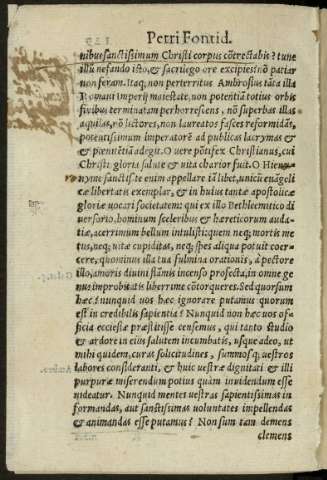 Petri Fontid.
nibus sanctissimum Christi corpus cōtrectabis? tune
illū nefando isto, & sacrilego ore excipies? nō patiar
non feram. Itaq; non perterritus Ambrosius tāta illa
Romani imperij maiestate, non potentiā totius orbis
finibus terminatam perhorrescens, nō superbas illas
aquilas, nō lictores, non laureatos fasces reformidās,
potentissimum imperatorē ad publicas lacrymas &
& pœnitētiā adegit. O uere pōtifex Christianus, cui
Christi gloria salute & uita charior fuit. O Hiero-
nyme sanctissime enim appellare tā libet, unicū euāgeli
cæ libertatis exemplar, & in huius tantæ apostolicæ
gloriæ uocari societatem: qui ex illo Bethleemitico di
uersorio, hominum sceleribus & hæreticorum auda-
tiæ, acerrimum bellum intulisti: quem neq; mortis me
tus, neq; uitæ cupiditas, neq; spes aliqua potuit coer-
cere, quominus illa tua fulmina orationis, à pectore
illo, amoris diuini flāmis incenso profecta, in omne ge
nus improbitatis liberrime cōtorqueres. Sed quorsum
hæc? nunquid uos hæc ignorare putamus quorum
est incredibilis sapientia? Nunquid non hæc uos of-
ficia ecclesiæ præstitisse censemus, qui tanto studio
& ardore in eius salutem incumbatis, usque adeo, ut
mihi quidem, curas solicitudines, summosq; uestros
labores consideranti, & huic uestræ dignitati & illi
purpuræ miserendum potius quàm inuidendum esse
uideatur. Nunquid mentes uestras sapientissimas in
formandas, aut sanctissimas uoluntates impellendas
& animandas esse putamus? Non sum tam demens
clemens